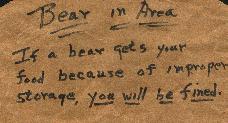 Bear in Area
If a bear gets your
food because of improper
storage, you will be fined.